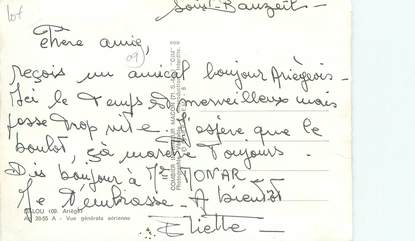 lot
Saint-Bauzeil-
Chère amie,
09
reçois un amical bonjour Ariégeois-
Ici le temps est merveilleux mais
passe trop vite. J'espère que le
boulot, çà marche toujours.
Dis bonjour à Mme MONAR
Je t'embrasse - A bientôt
Eliette
LOU (09. Ariège)
A. 20-55 A - Vue générale aérienne